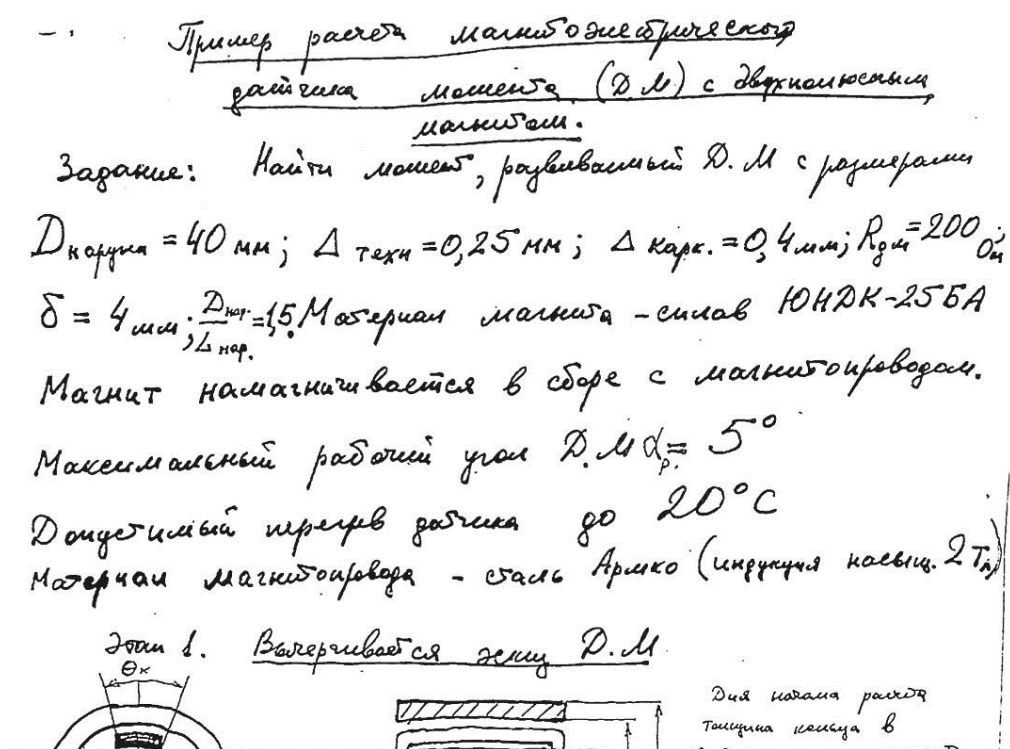 Пример расчета магнитоэлектрического
датчика момента (Д.М) с двухполюсным
магнитом.
Задание: Найти момент, развиваемый Д.М с размерами
Dнаружн = 40 мм; Δ техн = 0,25 мм; Δ карк. = 0,4 мм; Rдм = 200 Ом;
δ = 4 мм; Dнар./Lнар. = 1,5. Материал магнита - сплав ЮНДК-25БА
Магнит намагничивается в сборе с магнитопроводом.
Максимальный рабочий угол Д.М αр. = 5°
Допустимый перегрев датчика до 20°С
Материал магнитопровода - сталь Армко (индукция насыщ. 2 Тл)
Этап 1. Вычерчивается эскиз Д.М
Θк
Для начала расчета
толщина кольца в